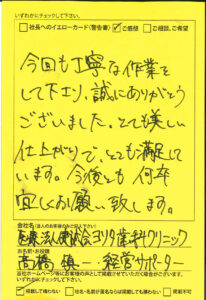 いずれかにチェックして下さい。
□社長へのイエローカード(警告書) ☑ご感想 □ご相談、ご希望
今回も丁寧な作業を
して下さり、誠にありがとう
ございました。とても美しい
仕上がりで、とても満足して
います。今後とも何卒
宜しくお願い致します。
会社名(法人のお客様のみご記入下さい)
医療法人使命会ヨリタ歯科クリニック
お名前・お役職
高橋 慎一 経営サポーター
当社ホームページ等にお客様の声として掲載させていただく場合がございます。
いずれかにチェックして下さい。
☑掲載して構わない □社名・名前が匿名ならば掲載しても構わない □掲載不可